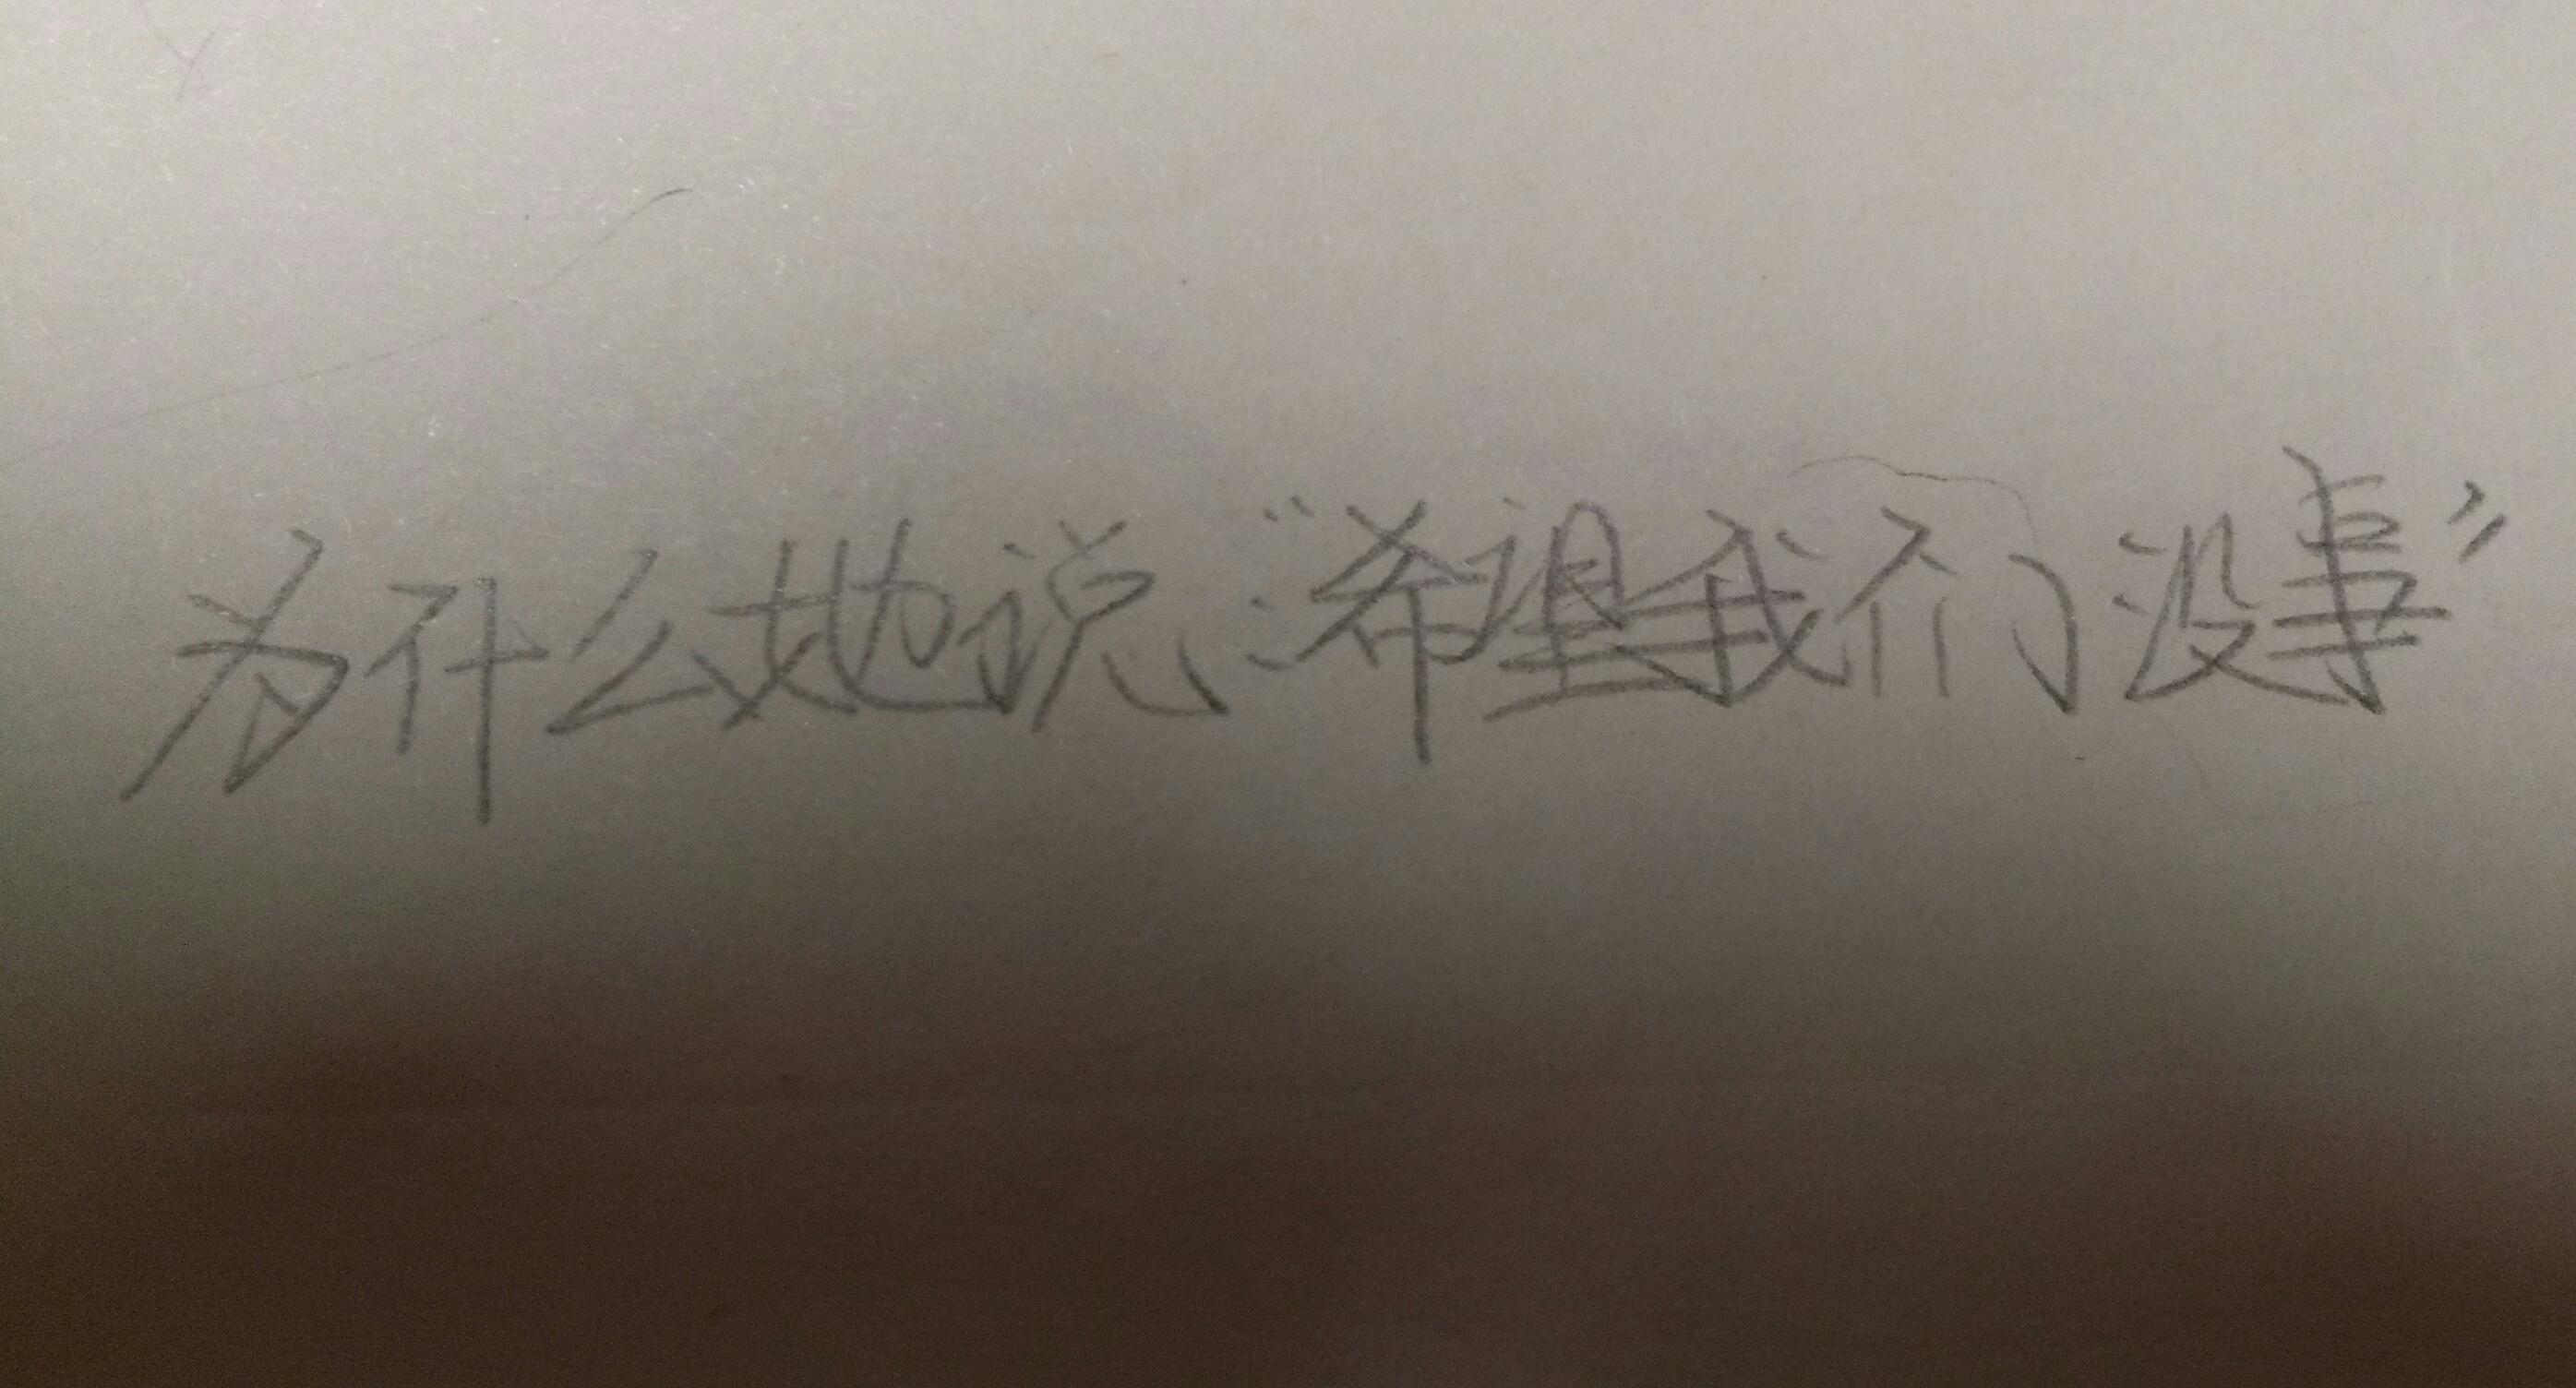 为什么她说:“希望我们没事”